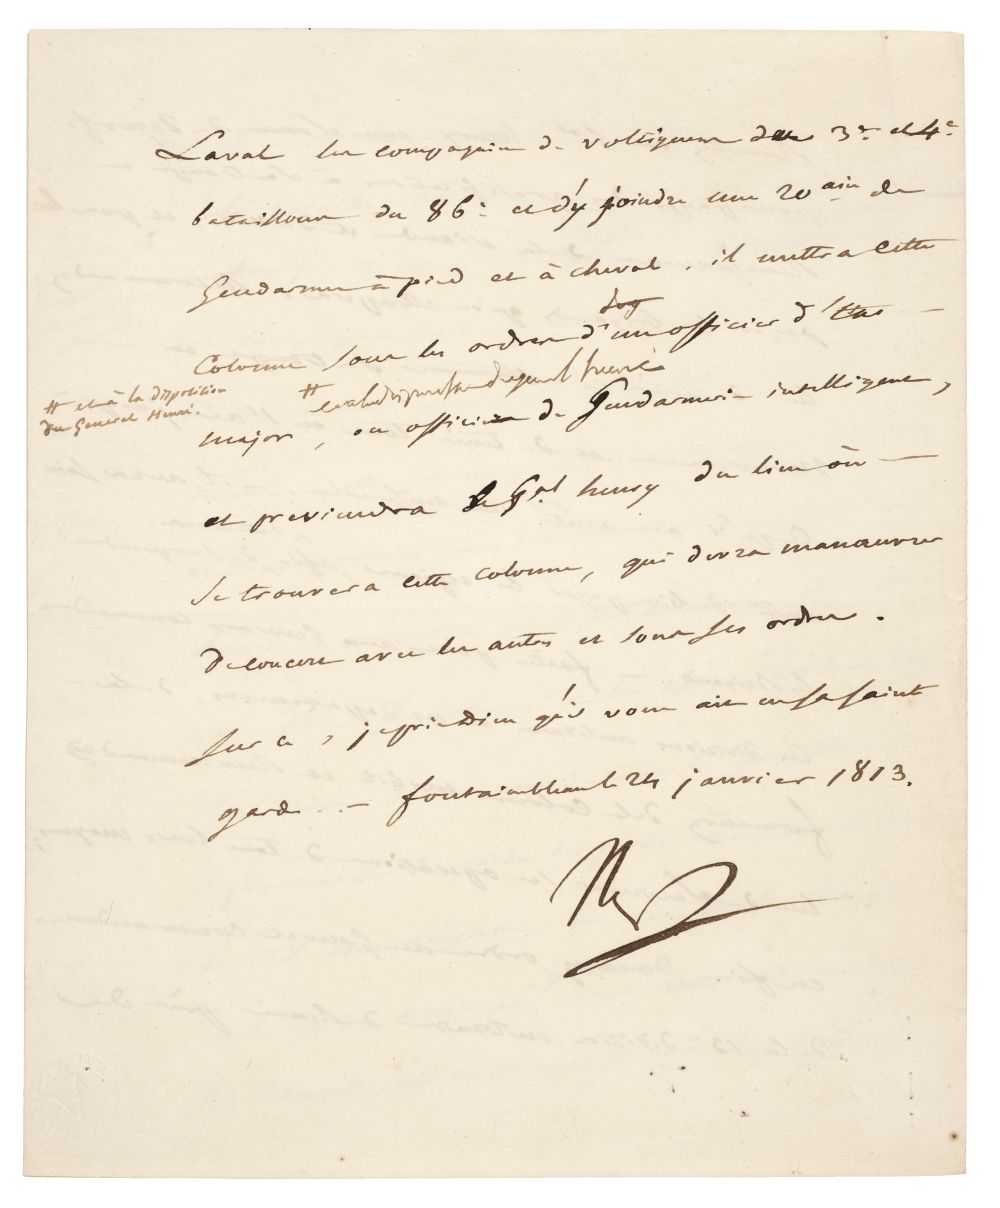 Laval les compagnies de voltigeurs des 3e. et 4e.
bataillons du 86e. et d'y joindre une 20aine de
Gendarmes à pied et à cheval, il mettra cette
Colonne sous les ordres d'un officier d'Etat
# et à la disposition
du Général Henri.
# et à la disposition du general henri
major, ou officier de Gendarmerie intelligent,
et previendra le Gal henry du lieu où
Se trouvera cette colonne, qui devra manœuvrer
de concert avec les autres et sous ses ordres.
Sur ce, je prie Dieu qu'il vous ait en sa sainte
garde. — fontainebleau le 24 janvier 1813.
Np